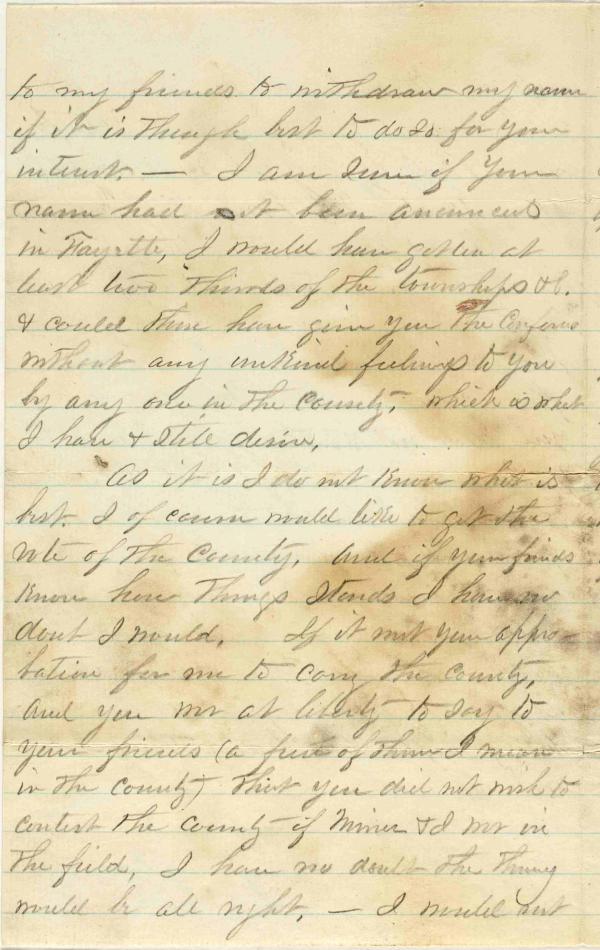 to my friends to withdraw my name
if it is though best to do so for your
interest. — I am sure if your
name had not been anounced
in Fayette, I would have gotten at
least two thirds of the townships &c.
& could then have give you the
without any unkind feelings to you
by any one in the County, which is what
I have & still desire,
As it is I do not know what is
best. I of course would like to get the
vote of the County. And if your friends
know how things stands I have no
dout I would. If it met your appro-
bation for me to carry the county,
and you at liberty to say to
your friends (a few of them I mean
in the county) that you did not wish to
contest the county if & I in
the field, I have no doubt the thing
would be all right. — I would not